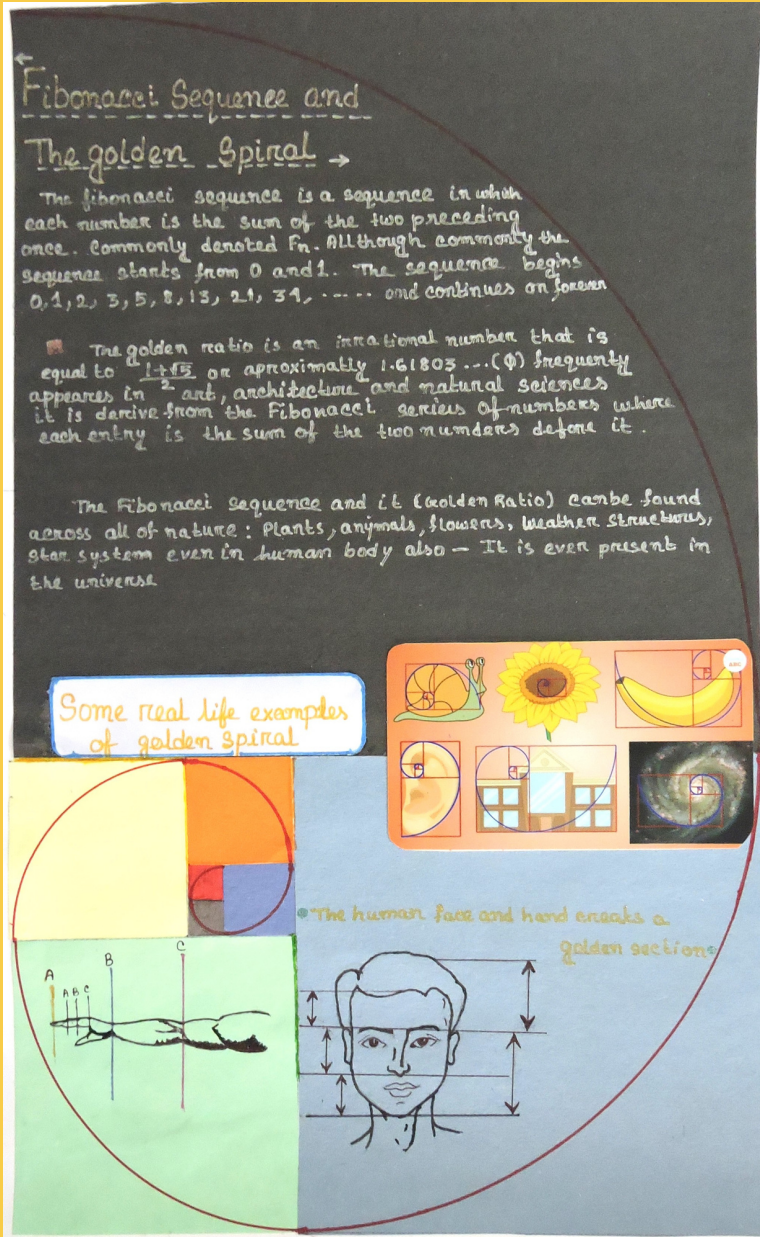 Fibonacci Sequence and
The golden Spiral →
The fibonacci sequence is a sequence in which
each number is the sum of the two preceding
once. Commonly denoted Fn. Allthough commonly the
sequence starts from 0 and 1. The sequence begins
0, 1, 2, 3, 5, 8, 13, 21, 34, ...... and continues on forever
The golden ratio is an irrational number that is
equal to 1+√5/2 or aproximatly 1.61803....(Φ) frequenty
appeares in art, architecture and natural sciences
it is derive from the Fibonacci serieus of numbers where
each entry is the sum of the two numders defore it.
The Fibonacci sequence and it (Golden Ratio) canbe found
across all of nature: Plants, anymals, flowers, Weather structures,
Star system even in human body also - It is ever present in
the universe
ABC
Some real life examples
of golden spiral
The human face and hand creats a
golden section
A
B
C
A B C